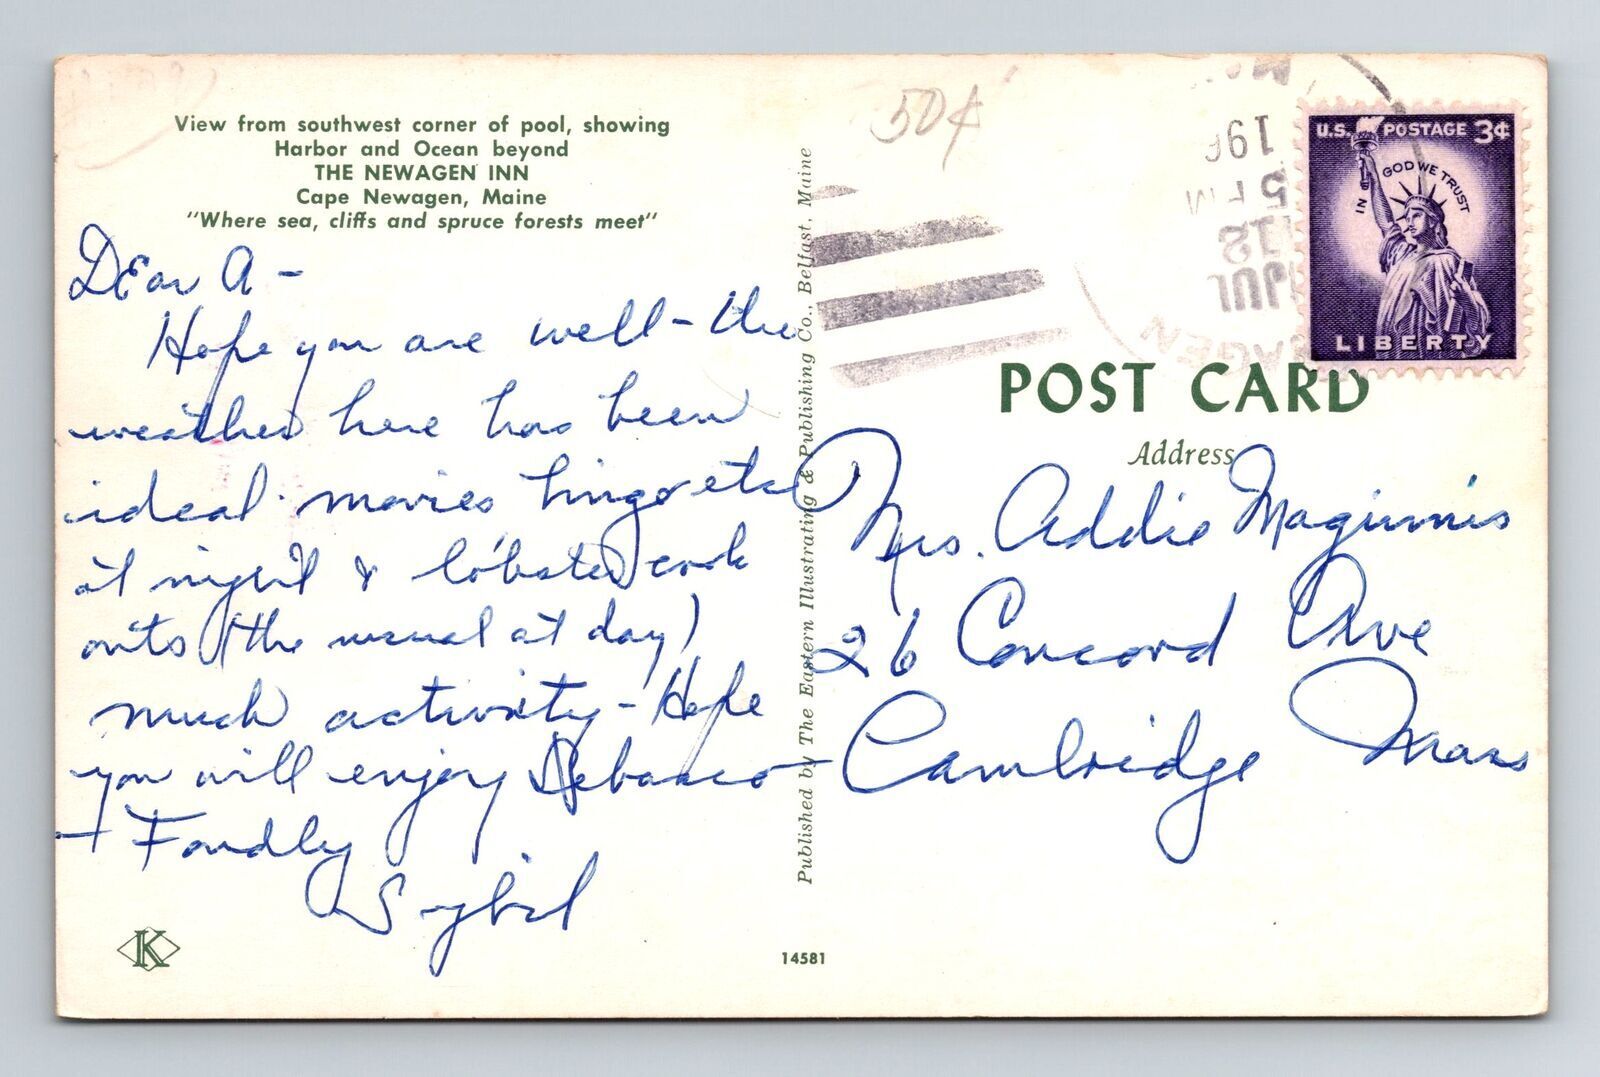 View from southwest corner of pool, showing
Harbor and Ocean beyond
THE NEWAGEN INN
Cape Newagen, Maine
"Where sea, cliffs and spruce forests meet"
Dear A -
Hope you are well - the
weather here has been
ideal - movies bingo etc
at night & lobster cook
outs (the usual at day)
much activity - Hope
you will enjoy Sebasco -
Fondly
Sybil
K
14581
Published by The Eastern Illustrating & Publishing Co., Belfast, Maine
50¢
AGEN
JUL
12
5 PM
196
U.S. POSTAGE 3¢
IN GOD WE TRUST
LIBERTY
POST CARD
Address
Mrs. Addie Maginnis
26 Concord Ave
Cambridge Mass